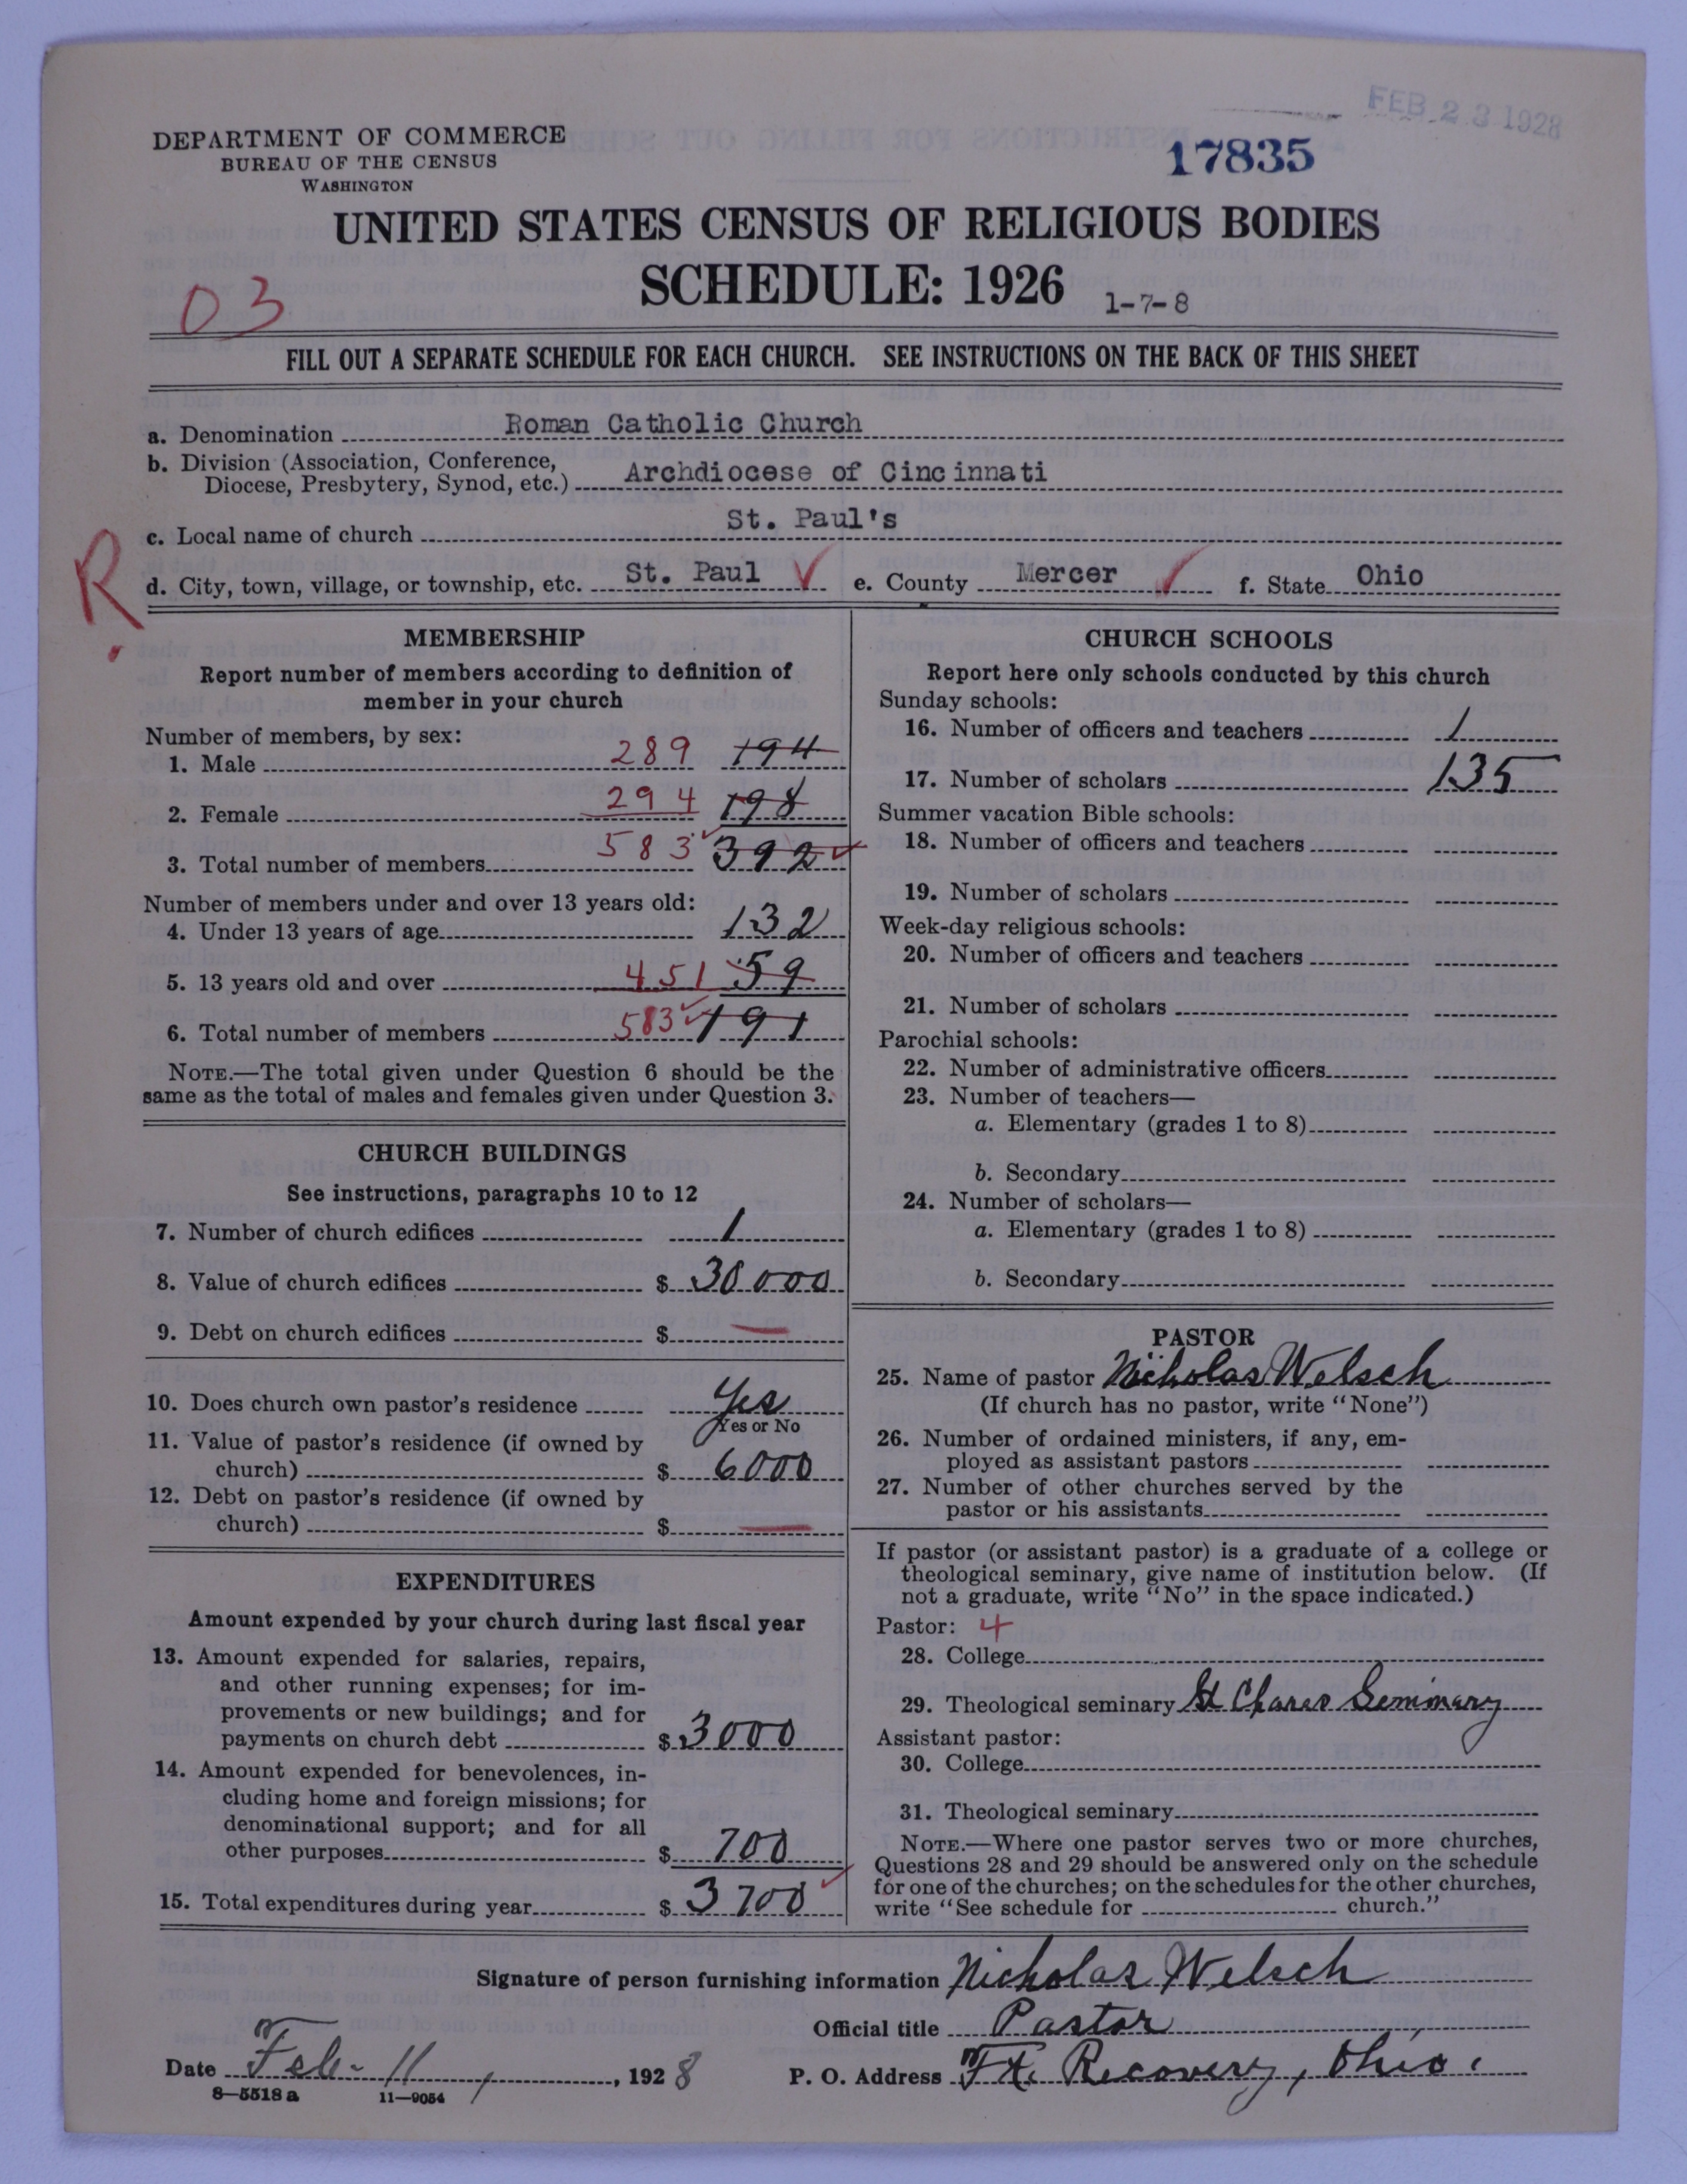 FEB 23 1928
DEPARTMENT OF COMMERCE
BUREAU OF THE CENSUS
WASHINGTON
17835
UNITED STATES CENSUS OF RELIGIOUS BODIES
SCHEDULE: 1926 1-7-8
03
FILL OUT A SEPARATE SCHEDULE FOR EACH CHURCH. SEE INSTRUCTIONS ON THE BACK OF THIS SHEET
a. Denomination Roman Catholic Church
b. Division (Association, Conference,
Diocese, Presbytery, Synod, etc.) Archdiocese of Cincinnati
c. Local name of church St. Paul's
R
d. City, town, village, or township, etc. St. Paul e. County Mercer f. State Ohio
MEMBERSHIP
Report number of members according to definition of
member in your church
Number of members, by sex:
1. Male 289 194
2. Female 294 198
3. Total number of members 583 392
Number of members under and over 13 years old:
4. Under 13 years of age 132
5. 13 years old and over 451 59
6. Total number of members 583 191
NOTE.—The total given under Question 6 should be the
same as the total of males and females given under Question 3.
CHURCH BUILDINGS
See instructions, paragraphs 10 to 12
7. Number of church edifices 1
8. Value of church edifices $ 30000
9. Debt on church edifices $ —
10. Does church own pastor's residence Yes
Yes or No
11. Value of pastor's residence (if owned by
church) $ 6000
12. Debt on pastor's residence (if owned by
church) $ —
EXPENDITURES
Amount expended by your church during last fiscal year
13. Amount expended for salaries, repairs,
and other running expenses; for im-
provements or new buildings; and for
payments on church debt $ 3000
14. Amount expended for benevolences, in-
cluding home and foreign missions; for
denominational support; and for all
other purposes $ 700
15. Total expenditures during year $ 3700
CHURCH SCHOOLS
Report here only schools conducted by this church
Sunday schools:
16. Number of officers and teachers 1
17. Number of scholars 135
Summer vacation Bible schools:
18. Number of officers and teachers
19. Number of scholars
Week-day religious schools:
20. Number of officers and teachers
21. Number of scholars
Parochial schools:
22. Number of administrative officers
23. Number of teachers—
a. Elementary (grades 1 to 8)
b. Secondary
24. Number of scholars—
a. Elementary (grades 1 to 8)
b. Secondary
PASTOR
25. Name of pastor Nicholas Welsch
(If church has no pastor, write "None")
26. Number of ordained ministers, if any, em-
ployed as assistant pastors
27. Number of other churches served by the
pastor or his assistants
If pastor (or assistant pastor) is a graduate of a college or
theological seminary, give name of institution below. (If
not a graduate, write "No" in the space indicated.)
Pastor: 4
28. College
29. Theological seminary St Chares Seminary
Assistant pastor:
30. College
31. Theological seminary
NOTE.—Where one pastor serves two or more churches,
Questions 28 and 29 should be answered only on the schedule
for one of the churches; on the schedules for the other churches,
write "See schedule for church."
Signature of person furnishing information Nicholas Welsch
Official title Pastor
Date Feb- 11, 1928 P. O. Address Ft. Recovery, Ohio.
8—5518 a 11—9054